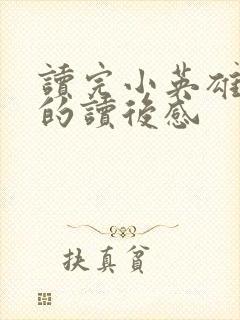 讀完小英雄
的讀後感
扶真貧